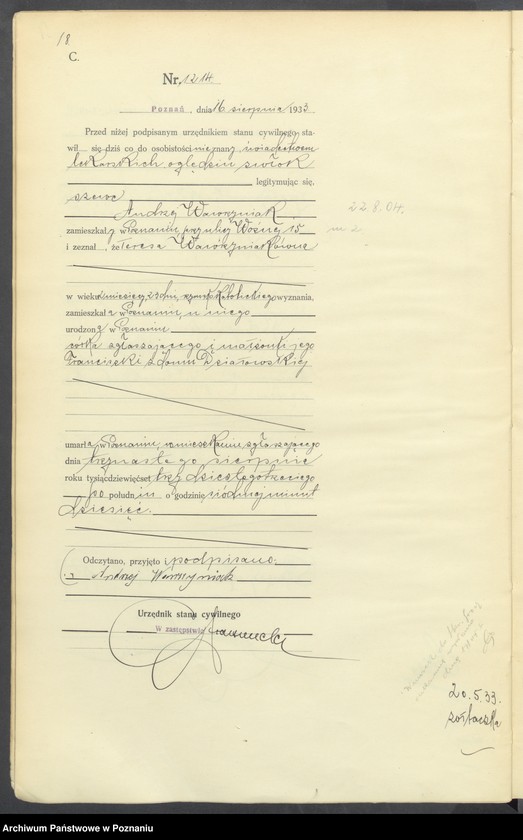 18
C.
Nr. 1214
Poznań, dnia 16 sierpnia 1933
Przed niżej podpisanym urzędnikiem stanu cywilnego sta-
wił się dziś co do osobistości nieznany, świadectwem
lekarskich oględzin zwłok
legitymując się,
szewc
Andrzej Wawrzyniak
zamieszkały w Poznaniu, przy ulicy Woźnej 15
i zeznał, że Teresa Wawrzyniakówna
w wieku 2 miesięcy 23 dni, rzymsko katolickiego wyznania,
zamieszkała w Poznaniu, u niego
urodzona w Poznaniu
córka zgłaszającego i małżonki jego
Franciszki z domu Działowskiej
umarła w Poznaniu, w mieszkaniu zgłaszającego
dnia trzynastego sierpnia
roku tysiącdziewięćset trzydziestego trzeciego
po południu o godzinie siódmej minut
dziesięć.
Odczytano, przyjęto i podpisano.
Andrzej Wawrzyniak
Urzędnik stanu cywilnego
W zastępstwie
22.8.04.
20.5.33.
żółtaczka
Archiwum Państwowe w Poznaniu